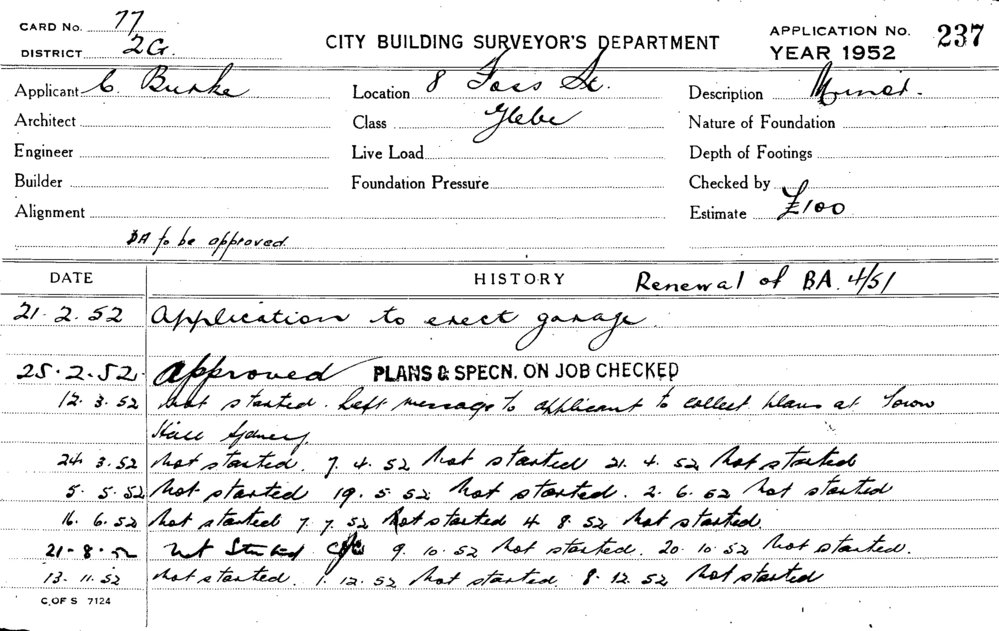 CARD No. 77
DISTRICT 2G.
CITY BUILDING SURVEYOR'S DEPARTMENT
APPLICATION No. 237
YEAR 1952
Applicant C. Burke Location 8 Foss St. Description Minor.
Architect Class Glebe Nature of Foundation
Engineer Live Load Depth of Footings
Builder Foundation Pressure Checked by
Alignment Estimate £100
BA to be approved.
DATE HISTORY Renewal of BA. 4/51
21. 2. 52 Application to erect garage.
25. 2. 52. Approved PLANS & SPECN. ON JOB CHECKED
12. 3. 52 Not started. Left message to applicant to collect plans at Town
Hall Sydney.
24. 3. 52 Not started. 7. 4. 52 Not started 21. 4. 52 Not started
5. 5. 52 Not started 19. 5. 52 Not started. 2. 6. 52 Not started
16. 6. 52 Not started 7. 7. 52 Not started 4. 8. 52 Not started.
21-8-52 Not Started 9. 10. 52 Not started. 20. 10. 52 Not started.
13. 11. 52 Not started. 1. 12. 52 Not started. 8. 12. 52 Not started
C. OF S 7124